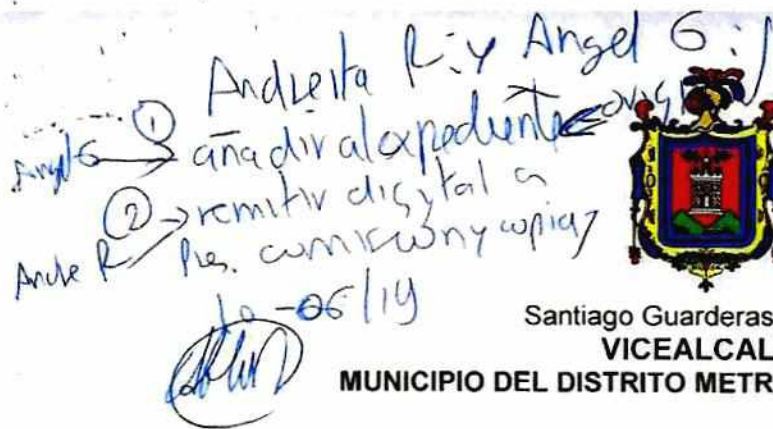 Andreita R. y Angel G.:
Angel G → ① añadir al expediente
② → remitir digital a
Andre R Pres. comisión y copias
10-06/19
Santiago Guarderas
VICEALCAL
MUNICIPIO DEL DISTRITO METR